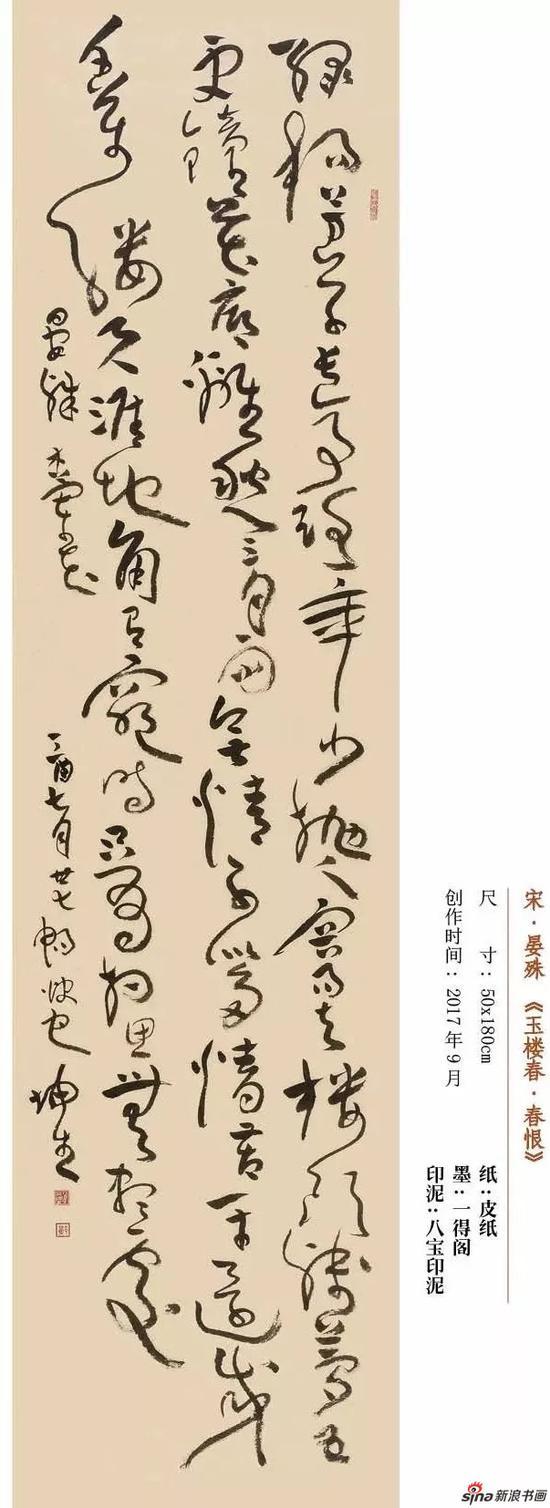 綠楊芳草長亭路年少拋人容易去樓頭殘夢五
更鐘花底離愁三月雨無情不似多情苦一寸還成
千萬縷天涯地角有窮時只有相思無盡處
晏殊 木蘭花 酉七月廿七
宋·晏殊 《玉楼春·春恨》
尺 寸：50x180cm
创作时间：2017年9月
纸：皮纸
墨：一得阁
印泥：八宝印泥
sina新浪书画